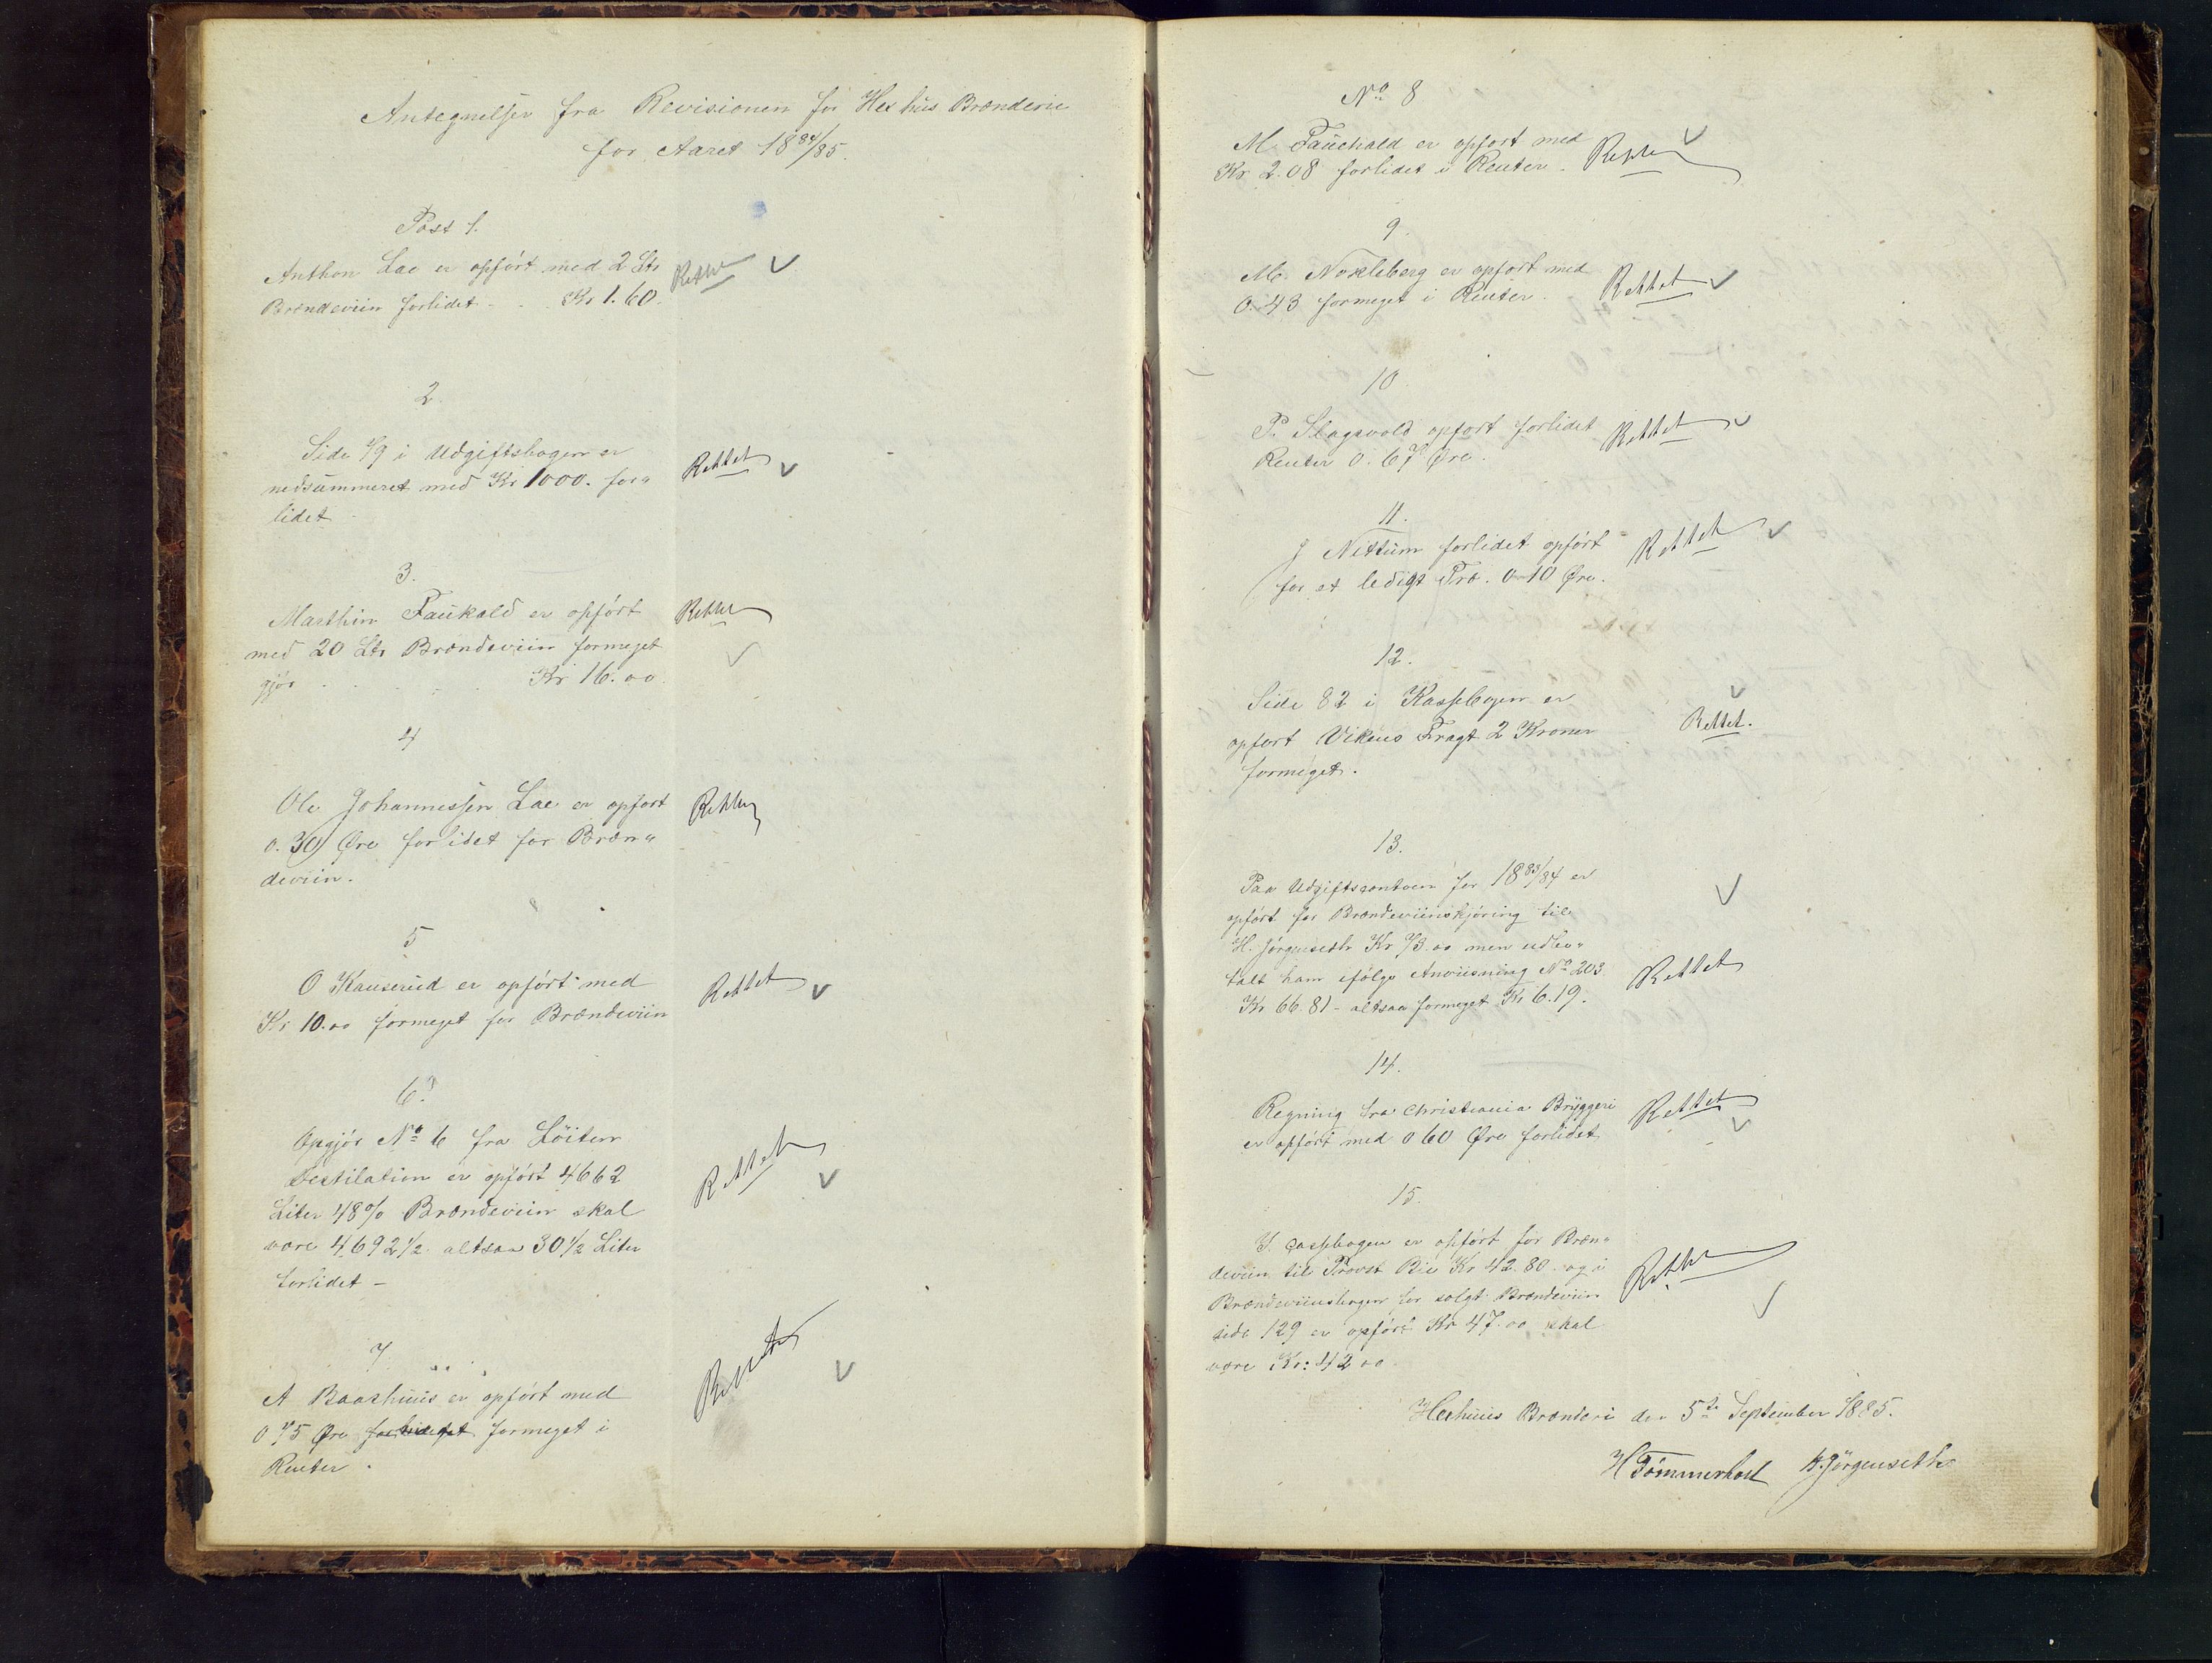 Antegnelser fra Revisionen for Hexhus Brænderie
for Aaret 18 84/85.
Post 1.
Anthon Lae er opført med 2 Ltr Rettet
Brændeviin forlidet - . Kr 1.60.
2.
Side 79 i Udgiftsbogen er
nedsummeret med Kr 1000. for„ Rettet
lidet -
3.
Marthin Faukald er opført Rettet
med 20 Ltr Brændeviin formeget
gjør . . . . Kr 16.00.
4
Ole Johannessen Lae er opført Rettet
0.30 Øre forlidet for Bræn„
deviin.
5
O Kauserud er opført med Rettet
Kr 10.00 formeget for Brændeviin
6.
Opgjør No 6 fra Löiten
Destilation er opført 4662
Liter 48% Brændeviin skal Rettet
være 4692½ altsaa 30½ Liter
forlidet -
7
A Baashuus er opført med Rettet
0 75 Øre forlidet formeget i
Renter.
No 8
M. Fauchald er opført med
Kr 2.08 forlidet i Renter. Rettet
9.
M. Nøkleberg er opført med Rettet
0.43 formeget i Renter.
10
P. Slagsvold opført forlidet Rettet
Renter 0.67 Øre.
11.
J Nittum forlidet opført Rettet
for et ledigt Træ. 0-10 Øre.
12.
Side 82 i Kassebogen er
opført Vikens Fragt 2 Kroner Rettet.
formeget.
13.
Paa Udgiftscontoen for 18 83/84 er
opført for Brændeviinskjøring til
H. Jørgenseth Kr 73.00 men udbe„
talt ham ifølge Anviisning No 203. Rettet
Kr 66.81 - altsaa formeget Kr 6.19.
14.
Regning fra Christiania Bryggeri Rettet
er opført med 0 60 Øre forlidet
15.
I Cassebogen er opført for Bræn„
deviin til Provst Bie Kr 42.80. og i Rettet
Brændeviinsbogen for solgt Brændeviin
side 129 er opført Kr 47.00 skal
være Kr: 42 00.
Hexhuus Brænderi den 5te September 1885.
H Tömmerhol H. Jørgenseth